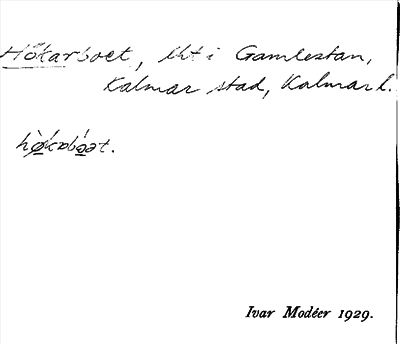 Hökarboet, tht i Gamlestan,
Kalmar stad, Kalmar l.
Ivar Modéer 1929.